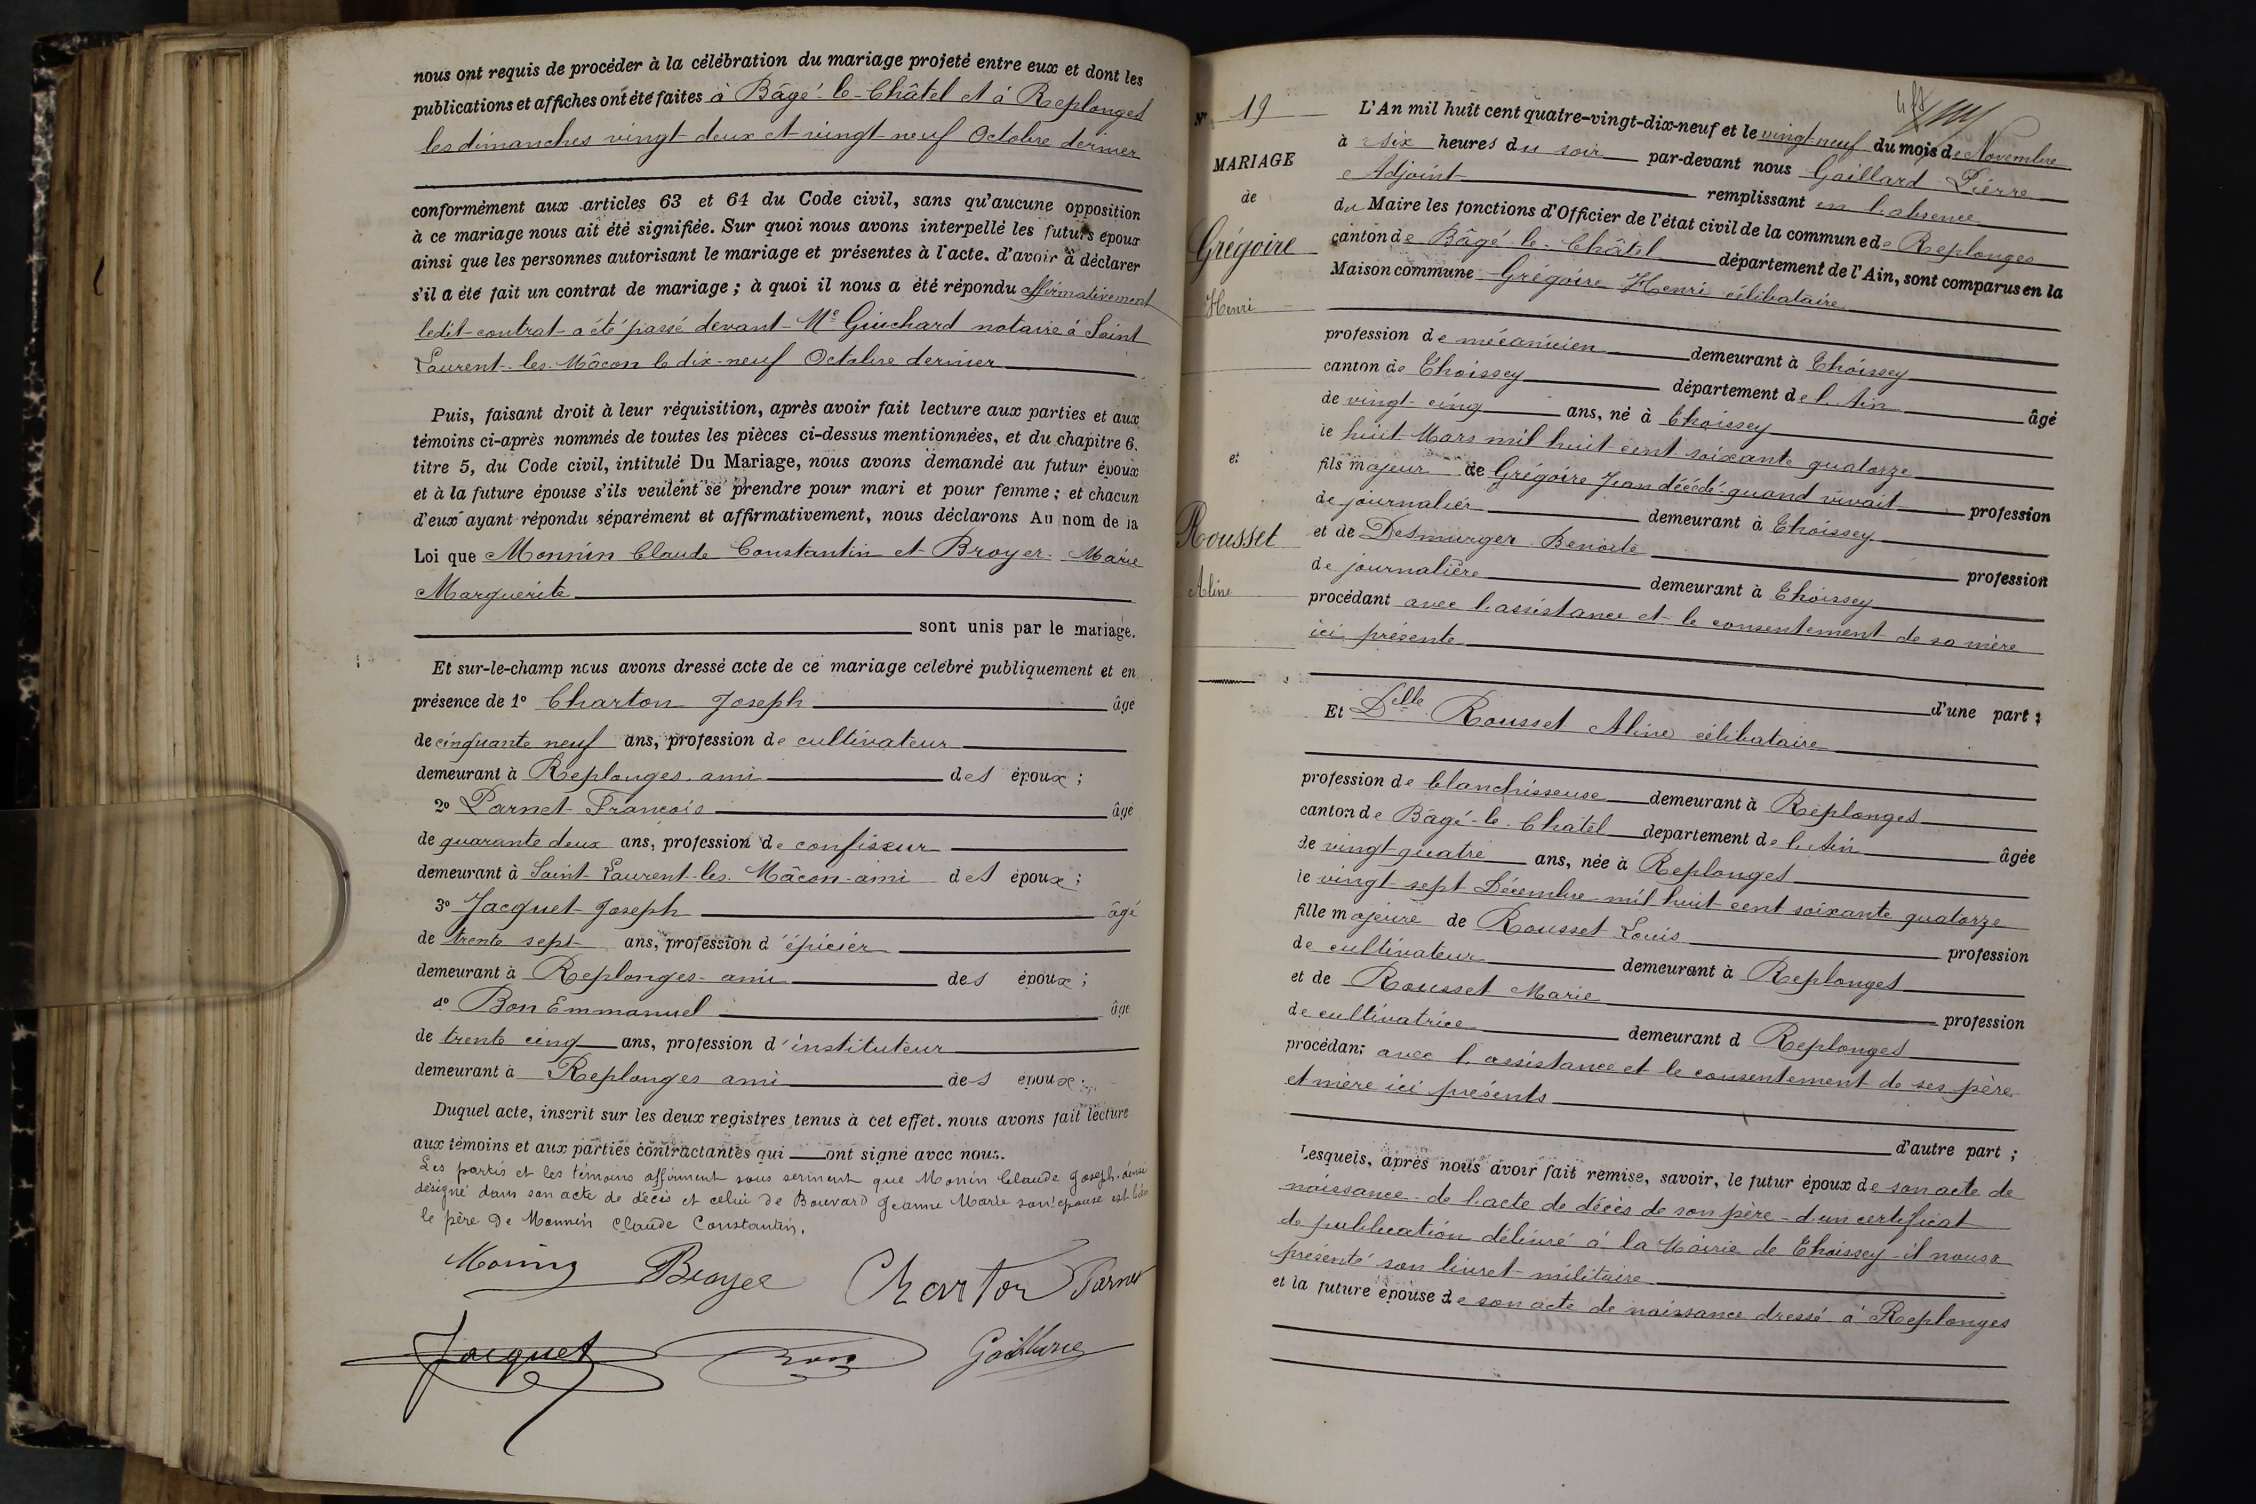 nous ont requis de procéder à la célébration du mariage projeté entre eux et dont les
publications et affiches ont été faites à Bâgé-le-Châtel et à Replonges
les dimanches vingt-deux et vingt-neuf Octobre dernier
conformément aux articles 63 et 64 du Code civil, sans qu'aucune opposition
à ce mariage nous ait été signifiée. Sur quoi nous avons interpellé les futurs époux
ainsi que les personnes autorisant le mariage et présentes à l'acte. d'avoir à déclarer
s'il a été fait un contrat de mariage ; à quoi il nous a été répondu affirmativement
ledit contrat a été passé devant Me Guichard notaire à Saint
Laurent-les-Mâcon le dix-neuf Octobre dernier
Puis, faisant droit à leur réquisition, après avoir fait lecture aux parties et aux
témoins ci-après nommés de toutes les pièces ci-dessus mentionnées, et du chapitre 6.
titre 5, du Code civil, intitulé Du Mariage, nous avons demandé au futur époux
et à la future épouse s'ils veulent se prendre pour mari et pour femme ; et chacun
d'eux ayant répondu séparément et affirmativement, nous déclarons Au nom de la
Loi que Monnin Claude Constantin et Broyer Marie
Marguerite
sont unis par le mariage.
Et sur-le-champ nous avons dressé acte de ce mariage célébré publiquement et en
présence de 1º Charton Joseph âgé
de cinquante neuf ans, profession de cultivateur
demeurant à Replonges ami des époux ;
2º Parnet François âgé
de quarante deux ans, profession de confiseur
demeurant à Saint-Laurent-les-Mâcon-ami des époux ;
3º Jacquet Joseph âgé
de trente sept ans, profession d'épicier
demeurant à Replonges ami des époux ;
4º Bon Emmanuel âgé
de trente cinq ans, profession d'instituteur
demeurant à Replonges ami des époux.
Duquel acte, inscrit sur les deux registres tenus à cet effet. nous avons fait lecture
aux témoins et aux parties contractantes qui ont signé avec nous.
Les parties et les témoins affirment sous serment que Monin Claude Joseph
désigné dans son acte de décès et celui de Bouvard Jeanne Marie son épouse est
le père de Monnin Claude Constantin.
Monin Broyer Charton Parnet
Jacquet Bon Gaillard
Nº 19
MARIAGE
de
Grégoire
Henri
et
Rousset
Aline
L'An mil huit cent quatre-vingt-dix-neuf et le vingt-neuf du mois de Novembre
à six heures du soir par-devant nous Gaillard Pierre
Adjoint remplissant en l'absence
du Maire les fonctions d'Officier de l'état civil de la commune de Replonges
canton de Bâgé-le-Châtel département de l'Ain, sont comparus en la
Maison commune Grégoire Henri célibataire
profession de mécanicien demeurant à Thoissey
canton de Thoissey département de l'Ain âgé
de vingt-cinq ans, né à Thoissey
le huit Mars mil huit cent soixante quatorze
fils majeur de Grégoire Jean décédé quand vivait profession
de journalier demeurant à Thoissey
et de Desmurger Benoîte profession
de journalière demeurant à Thoissey
procédant avec l'assistance et le consentement de sa mère
ici présente
d'une part ;
Et Delle Rousset Aline célibataire
profession de blanchisseuse demeurant à Replonges
canton de Bâgé-le-Chatel département de l'Ain âgée
de vingt quatre ans, née à Replonges
le vingt-sept Décembre mil huit cent soixante quatorze
fille majeure de Rousset Louis profession
de cultivateur demeurant à Replonges
et de Rousset Marie profession
de cultivatrice demeurant à Replonges
procédant avec l'assistance et le consentement de ses père
et mère ici présents
d'autre part ;
Lesquels, après nous avoir fait remise, savoir, le futur époux de son acte de
naissance - de l'acte de décès de son père - d'un certificat
de publication délivré à la Mairie de Thoissey - il nous a
présenté son livret militaire
et la future épouse de son acte de naissance dressé à Replonges